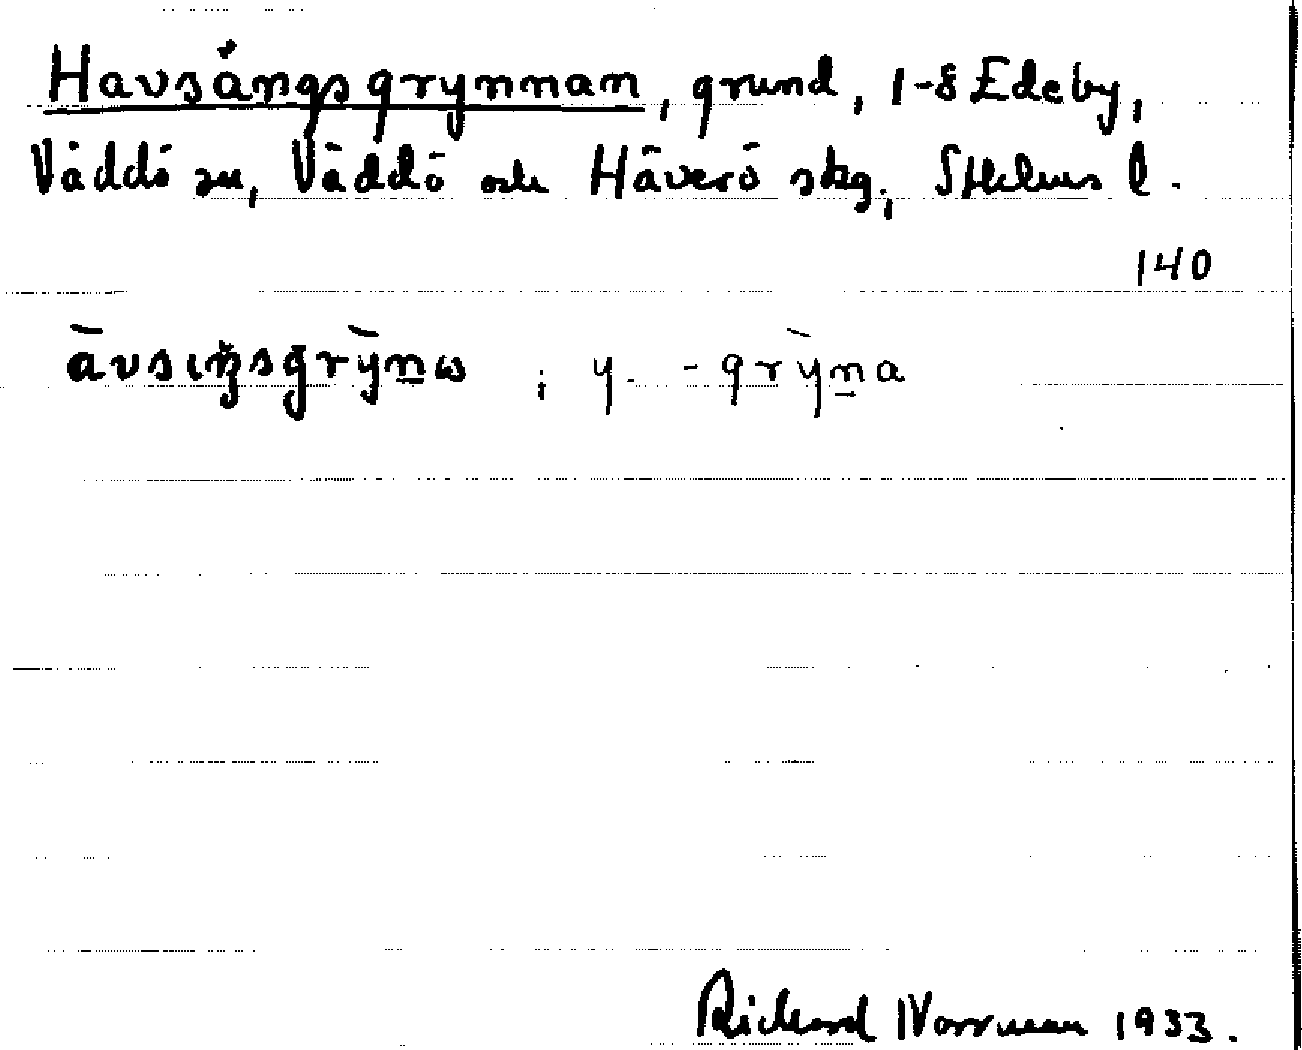 Havsängsgrynnan, grund, 1-8 Edeby,
Väddö sn, Väddö och Häverö skg, Sthlms l.
140
àvsıŋsgrỳnω ; y. -grỳna
Rickard Norrman 1933.